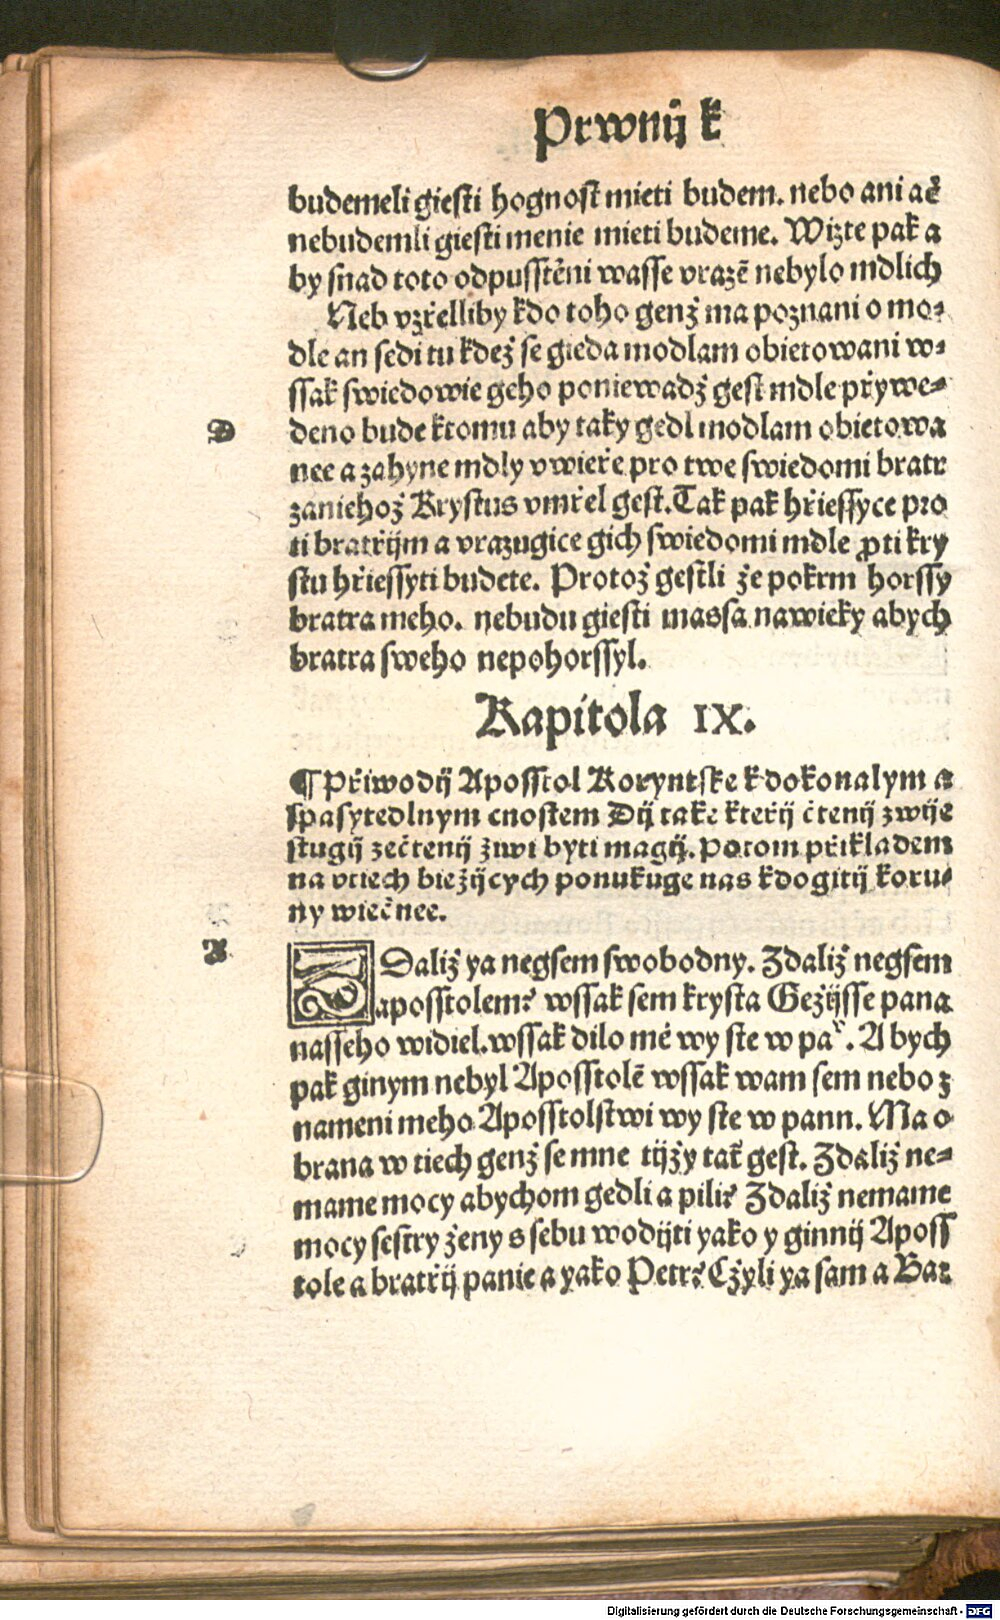 Prwnij k
budemeli giesti hognost mieti budem. nebo ani ač
nebudemli giesti menie mieti budeme. Wizte pak a
by snad toto odpusstěni wasse vrazē nebylo mdlich
Neb vzřelliby kdo toho genž ma poznani o mo⸗
dle an sedi tu kdež se gieda modlam obietowani w⸗
ssak swiedowie geho poniewadž gest mdle přywe⸗
D
deno bude ktomu aby taky gedl modlam obietowa
nee a zahyne mdly v wieře pro twe swiedomi bratr
zaniehož Krystus vmřel gest. Tak pak hřiessyce pro
ti bratřijm a vrazugice gich swiedomi mdle ꝓti kry
stu hřiessyti budete. Protož gestli že pokrm horssy
bratra meho. nebudu giesti massa nawieky abych
bratra sweho nepohorssyl.
Kapitola IX.
¶ Přiwodij Aposstol Koryntske k dokonalym a
spasytedlnym cnostem Dij také kteřij čtenij zwije
stugij zečtenij žiwi byti magij. Potom přikladem
na vtiech biežijcych ponukuge nas kdogitij koru⸗
ny wiečnee.
A
ZDaliž ya negsem swobodny. Zdaliž negsem
aposstolem? wssak sem krysta Gežijsse pana
nasseho widiel. wssak dilo mé wy ste w pa˜. A bych
pak ginym nebyl Aposstolē wssak wam sem nebo z
nameni meho Aposstolstwi wy ste w pann. Ma o
brana w tiech genž se mne tijžy tak gest. Zdaliž ne⸗
mame mocy abychom gedli a pili? Zdaliž nemame
mocy sestry ženy s sebu wodijti yako y ginnij Aposs
tole a bratřij panie a yako Petr? Cžyli ya sam a Bar
Digitalisierung gefördert durch die Deutsche Forschungsgemeinschaft - DFG